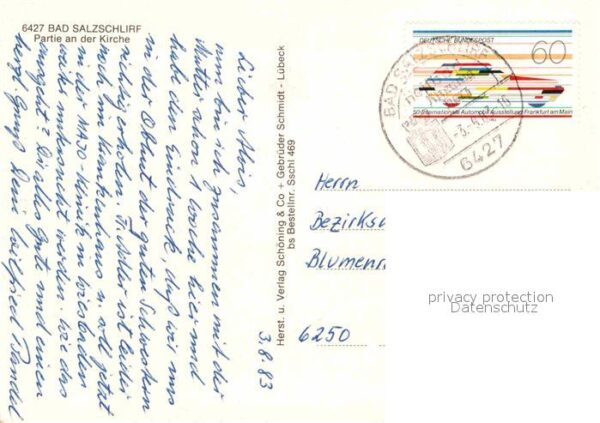 6427 BAD SALZSCHLIRF
Partie an der Kirche
Lieber Alois,
nun bin ich zusammen mit der
Mutter schon 1 Woche hier und
habe den Eindruck, daß wir uns
in der Obhut der guten Schwestern
richtig erholen. Fr. Adler ist leider
nach im Krankenhaus u. soll jetzt
in der Klinik in Wiesbaden
weiter behandelt werden. Wie das
ausgeht? Dir alles Gute und einen
herzl. Gruß Dein Wilfried
3.8.83
Herst. u. Verlag Schöning & Co + Gebrüder Schmidt - Lübeck
bs Bestellnr. Sschl 469
DEUTSCHE BUNDESPOST
60
50 Internationale Automobil-Ausstellung Frankfurt am Main
BAD SALZSCHLIRF
6427
Herrn
Bezirks
Blumen
6250
privacy protection
Datenschutz